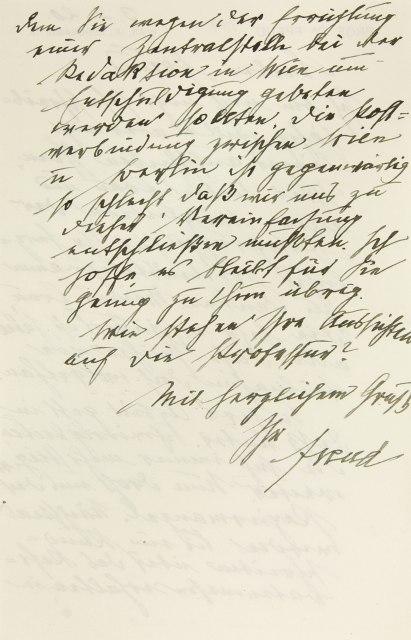 dem Sie wegen der Errichtung
einer Zentralstelle bei der
Redaktion in Wien um
Entschuldigung gebeten
werden sollten. Die Post-
verbindung zwischen Wien
u Berlin ist gegenwärtig
so schlecht daß wir uns zu
dieser Vereinfachung
entschließen mußten. Ich
hoffe, es bleibt für Sie
genug zu thun übrig.
Wie stehen Ihre Aussichten
auf die Professur?
Mit herzlichem Gruß
Ihr
Freud